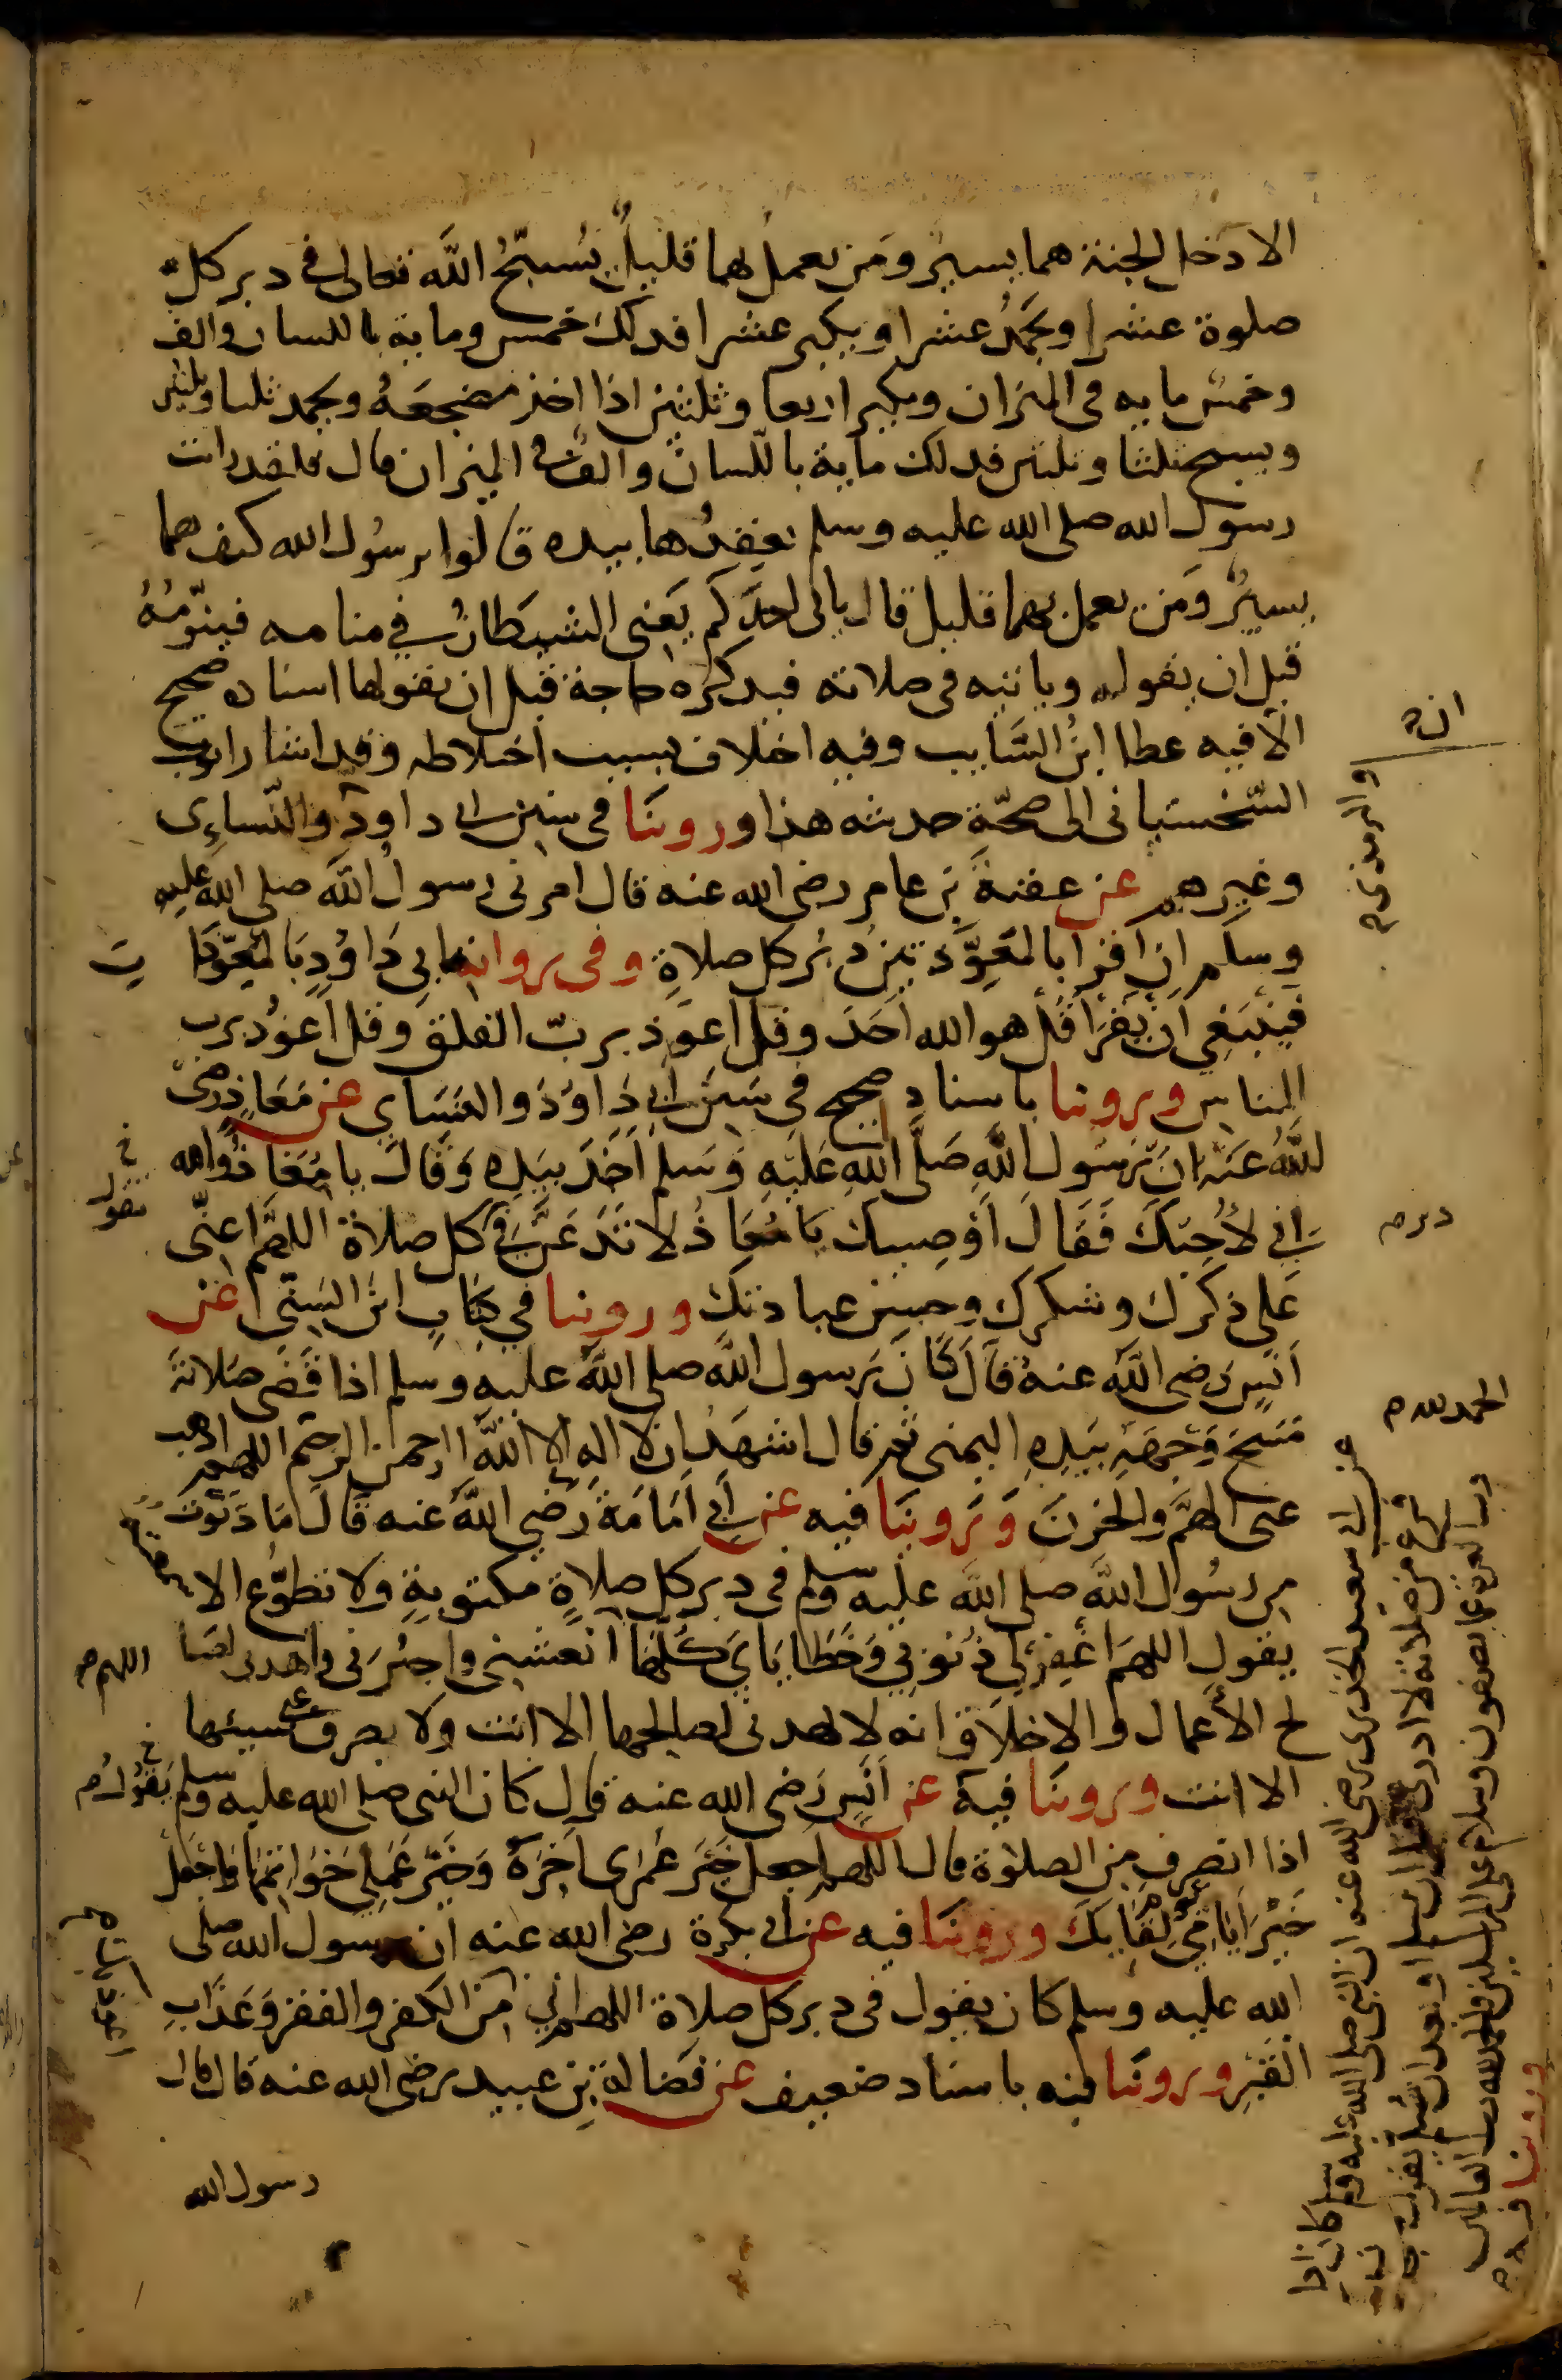 الا دخل الجنة هما يسيرٌ ومَن يعملُ بهما قليلٌ يُسبّحُ اللّه تعالى في دبر كلّ
صلوة عشرا ويحمَدُ عشرا ويكبر عشرا فذلك خمسون ومايه باللسان والف
وخمس مايه في الميزان ويكبر اربعا وثلثين اذا اخذ مضجعَهُ ويحمد ثلثا وثلثين
ويسبح ثلثا وثلثين فذلك ماية باللّسان والفٌ في الميزان قال فلقد رايت
رسول الله صلى الله عليه وسلم يعقِدُها بيده قالوا يرسُول الله كيف هما
يسيرٌ ومَن يعمل بهما قليل قال ياتي احدَكم يَعني الشيطانُ في منامه فينوّمُهُ
قبل ان يقوله وياتيه في صلاته فيذكره حاجة قبل ان يقولها اسناده صحيح
الا فيه عطا ابنُ السَّايب وفيه اختلاف بسبب اختلاطه وقد اشار ايوب
السَّختياني الى صحّة حديثه هذا وروينَا في سنن ابى داود والنّساءِى
وغيرهم عن عقبةَ بن عامر رضى الله عنه قال امرنى رسول اللّه صلى الله عليه
وسلم ان اقرأ بالمعَوِّذتين دُبُر كل صلاةٍ وفي رواية ابي دَاوُدِ بالمعَوِّذا تِ
فيَنبَغِي ان يقرَأ قُل هو الله اَحَد وقل اعوذ بربّ الفلق وقل اَعُوذ برب
الناس وروينا باسناد صحيح في سنن ابي دَاوُدَ والنسَاي عن مَعَاذٍ رضىَ
اللّهُ عنهُ انَ رسُول اللّهِ صَلَّى اللهِ عَليهِ وَسَلم اَخَذ بيَدِهِ وَقَالَ يا مُعَاذُ والله
اِني لاُحِبّكَ فَقَالَ اَوُصِيك يَا مُعَاذُ لا تَدَعَنَّ في كل صلاة اللهُمَّ اعِنّى
عَلى ذكرك وشكرك وحسن عبادتك وروينا في كتابِ ابن السّني عن
اَنَسٍ رَضى اللّه عنهُ قاَل كَانَ رَسول اللّه صلى اللّه عليه وسلم اذا قَضى صَلاتهَ
مَسَحَ وَجهَهُ بيَدِهِ اليمنى ثم قال اشهَدُ ان لا اله الا اللّهُ الرحمن الرحيم اللهم اذهب
عنى الهمَّ والحزنَ وَرَوينَا فيه عن ابي اُمَامَةَ رَضي اللّه عنه قالَ مَا دَنَوتُ
من رسُول اللّه صلى اللّه عليه وسلم في دبر كل صلاةٍ مكتوبةٍ ولا تطوّع الا سمعته
يقول اللهمَ اغفِر لي ذُنوُبي وَخَطَايَايَ كلّهَا اللهم انعشني واجبُرني واهدنى لصا
لح الاعمال والاخلاق انه لا يهدى لصالحها الا انت ولا يصرف عنى سيئها
الا انت وروينَا فيه عن اَنَسٍ رَضى الله عنه قال كان النبى صلى الله عليه وسلم يقوُل
اذا انصرف من الصلوة قال اللهم اجعل خيَر عمُرى آخِرَهُ وَخَيرَ عَملِى خَوَاتمهَا واجعَل
خَيْرَ ايَامى يَوم لقايكَ وروينَا فيه عن ابي بكرة رضى الله عنه ان رسول الله صلى
الله عليه وسلم كان يقول في دبر كل صلاة اللهم اني من الكفر والفقر وَعَذَابِ
القَبرِ وروينَا فيه باسناد ضعيف عن فَضَالة بنِ عبيد رضى الله عنه قال قال
رسول الله
انه
والترمذى م
دبر م
الحمد لله م
عن ابى سعيد الخدرى رضى الله عنه ان النبى صلى الله عليه وسلم كان اذا
فرغ من صلاته لا ادرى قبل ان يسلم او بعد ان يسلم يقول سبحان
رب العزة عما يصفون وسلام على المرسلين والحمد لله رب العالمين
وروينا فيه م